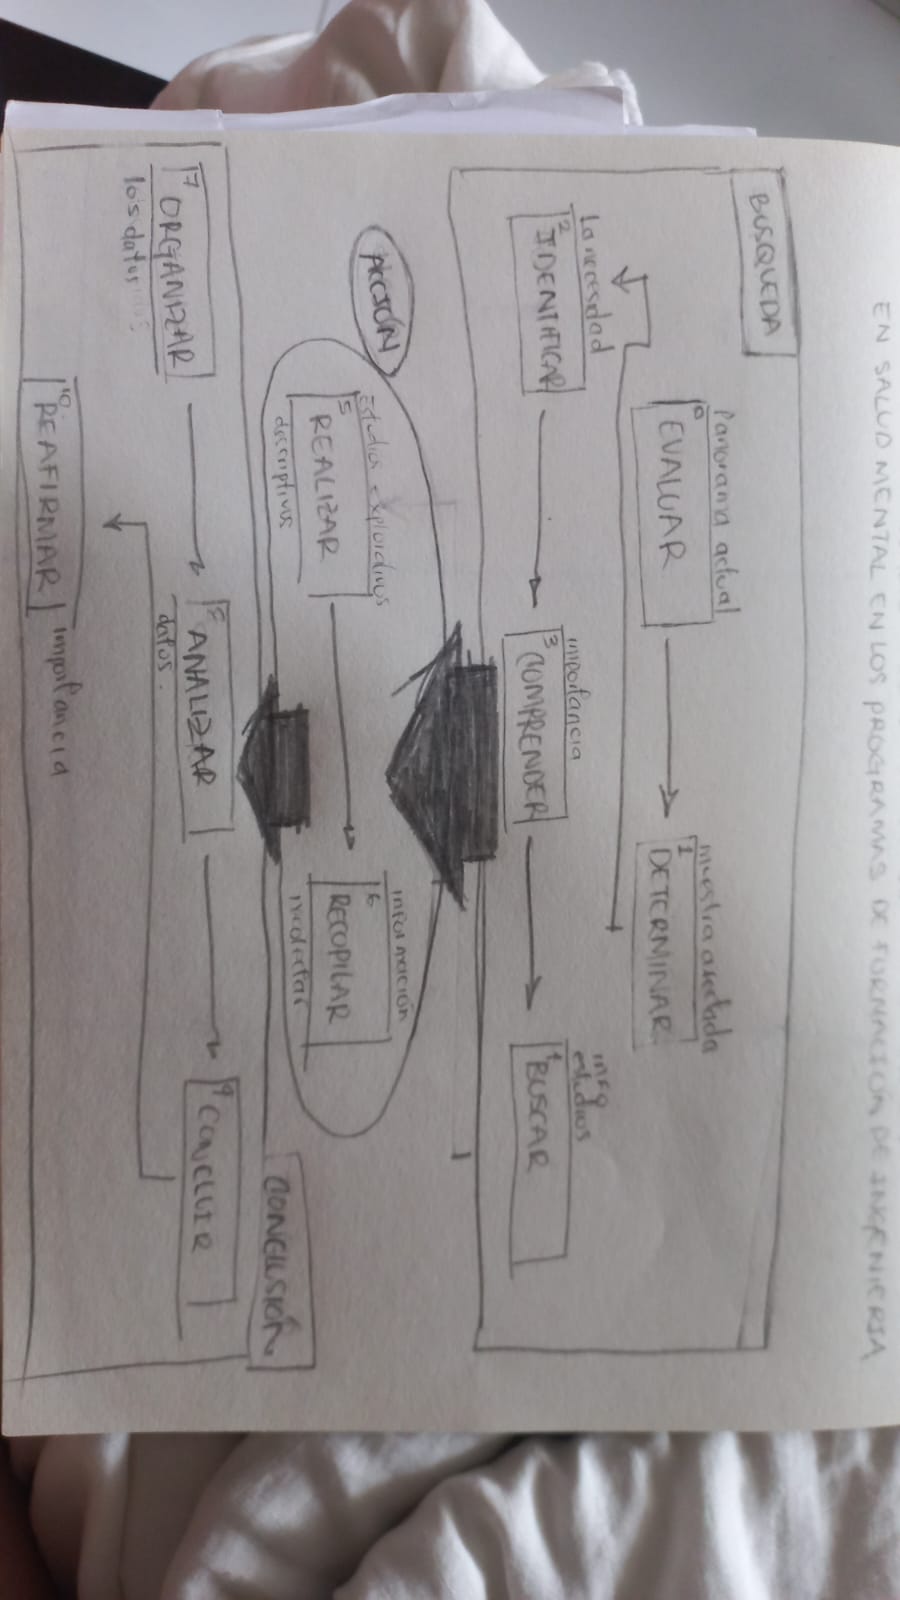 EN SALUD MENTAL EN LOS PROGRAMAS DE FORMACIÓN DE INGENIERIA
BUSQUEDA
Panorama actual
0
EVALUAR
muestra afectada
1
DETERMINAR
La necesidad
2
IDENTIFICAR
importancia
3
COMPRENDER
info
estudios
4
BUSCAR
ACCIÓN
Estudios explorativos
5
REALIZAR
descriptivos
información
6
RECOPILAR
recolectar
CONCLUSIÓN
7
ORGANIZAR
los datos
8
ANALIZAR
datos.
9
CONCLUIR
10
REAFIRMAR
importancia